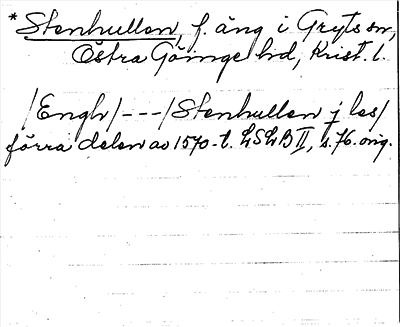 * Stenhullen, f. äng i Gryts sn,
Östra Göinge hd, Krist. l.
/Engh/---/Stenhullen j les/
förra delen av 1570-t. LSLB II, s. 76. orig.